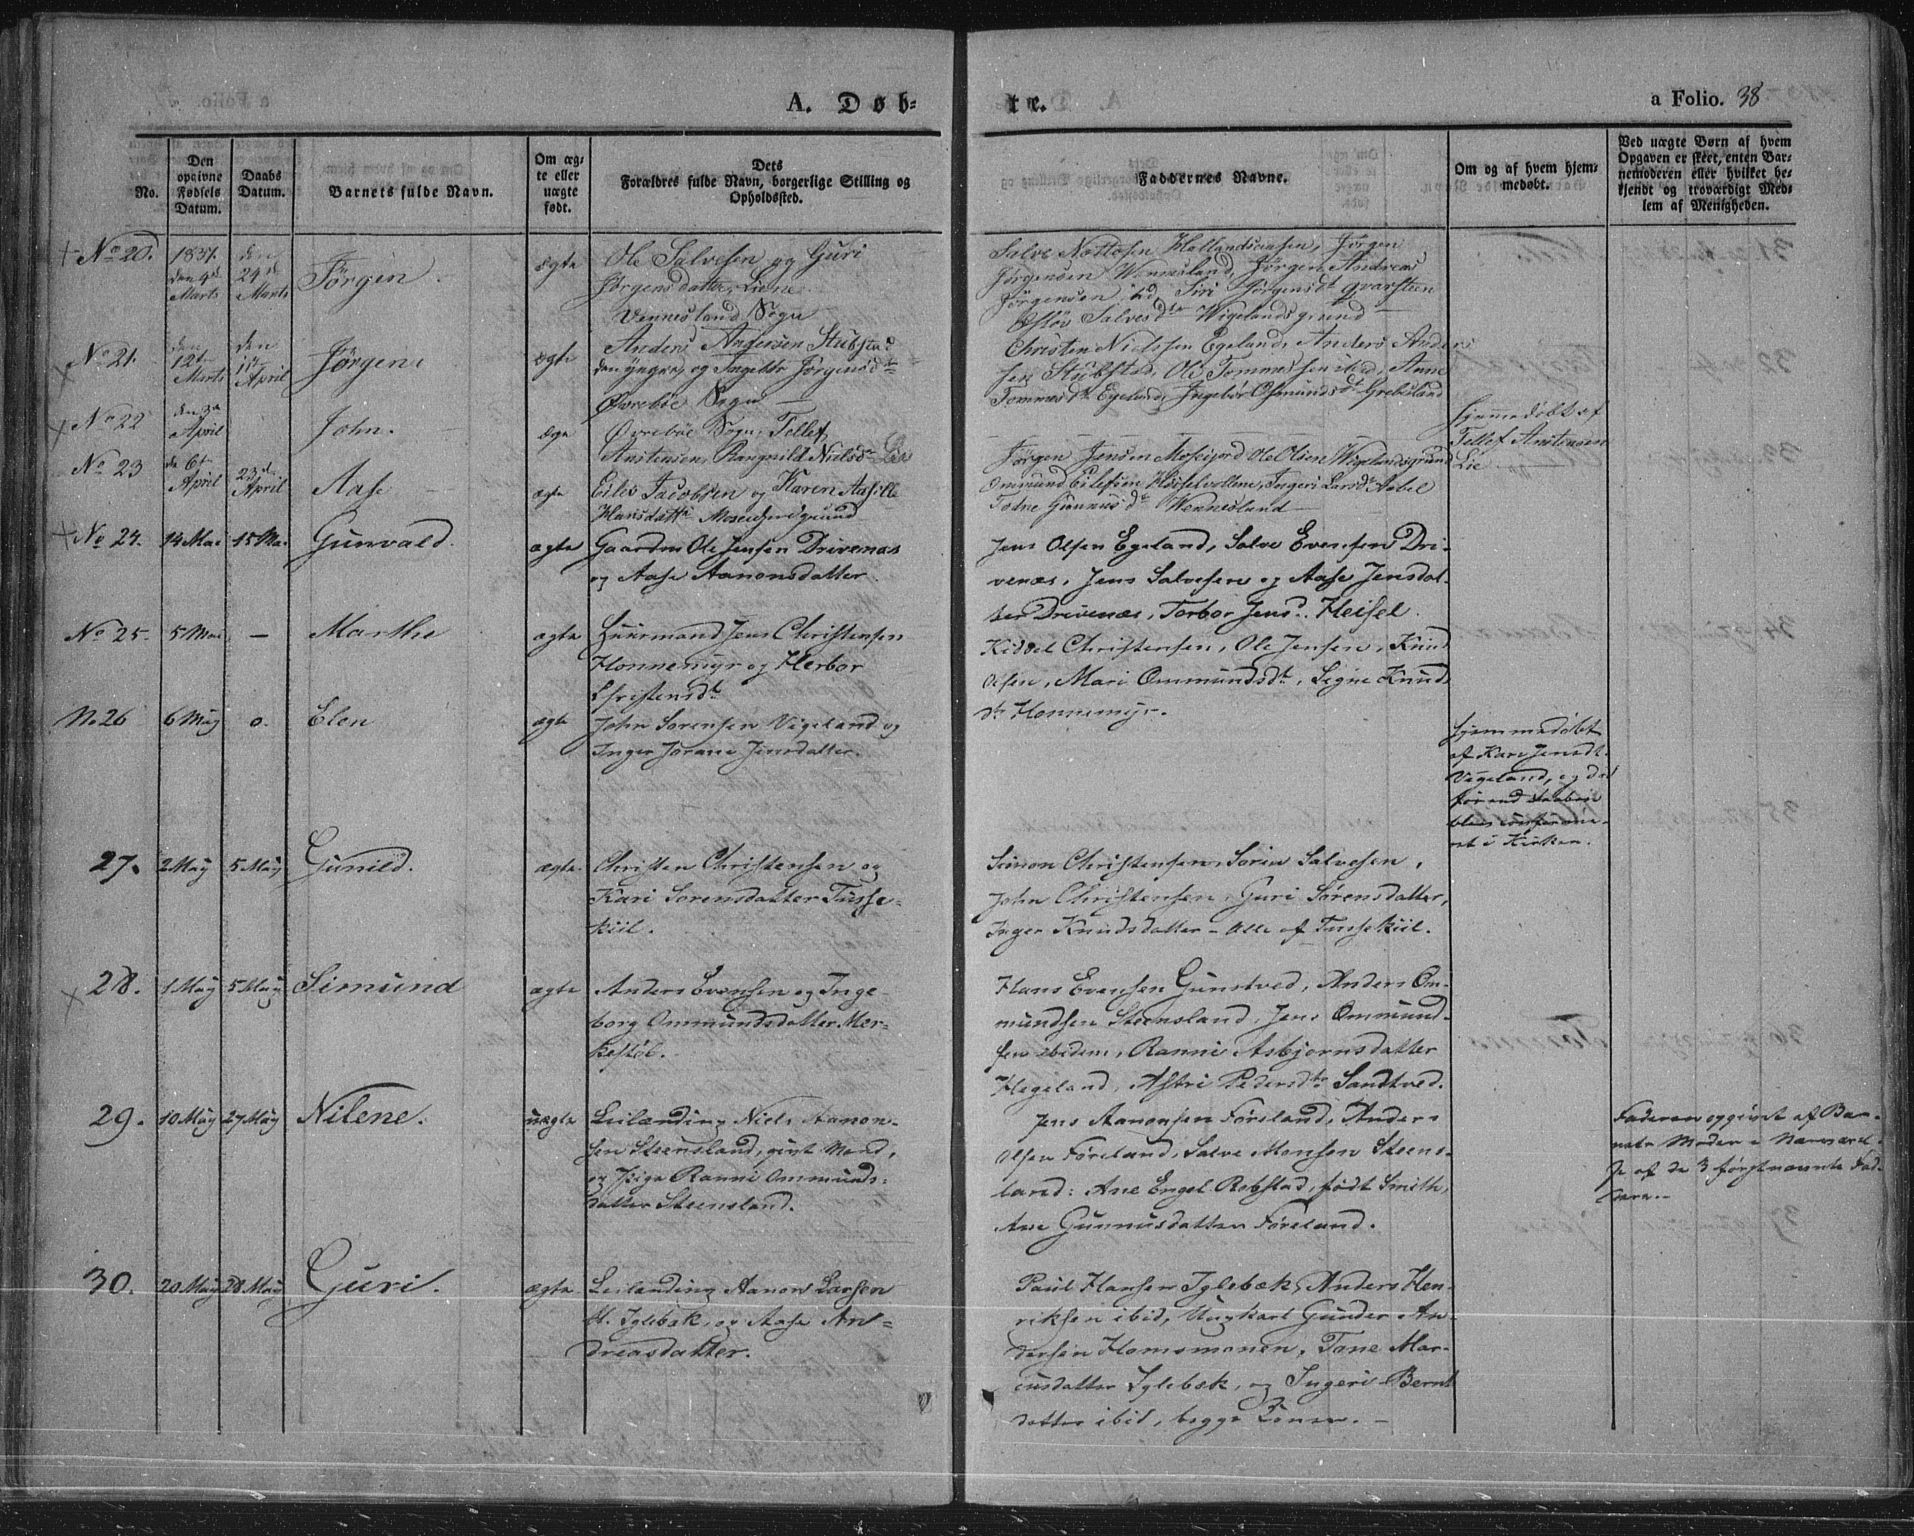 A. Døb-
te.
a Folio. 38
No.
Den
opgivne
Fødsels
Datum.
Daabs
Datum.
Barnets fulde Navn.
Om æg-
te eller
uægte
født.
Dets
Forældres fulde Navn, borgerlige Stilling og
Opholdssted.
Faddernes Navne.
Om og af hvem hjem-
medøbt.
Ved uægte Børn af hvem
Opgaven er skeet, enten Bar-
nemoderen eller hvilket be-
kjendt og troværdigt Med-
lem af Menigheden.
+ No 20.
1837.
den 4de
Marts
den
24de
Marts
Jörgin
ægte
Ole Salvesen og Guri
Jörgensdatter
Vennesland Sogn
Salve Jörgen
Jörgensen Wennesland, Jörgen Andreas
Jörgensen ibid, Siri Jörgensdt qvarsteen
Salvesdtr Wigelandsgrund
x No 21.
den
12te
Marts
den
April
Jörgen
ægte
Anders Andersen Stubstad
den yngre, og Ingebör Jörgensdtr
Øvrebøe Sogn
Christen Nielssen Egeland, Anders Ander-
sen Stubstad, Ole Tommessen ibid, Anne
Tommesdtr Egeland, Ingebör Osmundsdt Grebsland
x No 22
den
April
John.
ægte
Øvrebøe Sogn, Tellef
Anstensen, Rangnild Nielsdtr Lie
Hjemmedøbt af
Tellef Anstensen
Lie
No 23
de 6te
April
23de
April
Aase
ægte
Jacobsen og Karen
Hansdatter
Jörgen Jensen Mosfjord Ole Olsen Wigelandsgrund
Ommund Ingeri Larsdt
Todne Gunnusdtr Wennesland
+ No 24.
14 Mai
15 Mai
Gunvald.
ægte
Gaardm Ole Jensen Drivenæs
og Aase Aanonsdatter.
Jens Olsen Egeland, Salve Evensen Dri-
venæs, Jens Salvesen og Aase Jensdat-
ter Drivenæs, Torbor Jensd. Heisel.
No 25.
5 Mai
-
Marthe
ægte
Huusmand Jens Christensen
Honnemyr og Herbor
Christensdt
Kiddel Christensen, Ole Jensen, Knud
Olsen, Mari Ommundsdt, Signe Knuds
dtr Honnemyr.
No. 26
6 May
o.
Elen
ægte
John Sorensen Vigeland og
Inger Jorane Jensdatter.
Hjemmedøbt
af Kari Jensdt.
Vigeland, og død
førend
blev
et i Kirken.
27.
2 May
5 May
Gunild.
ægte
Christen Christensen og
Kari Sorensdatter Tusse-
kiil.
Simon Christensen, Sören Salvesen,
John Christensen, Guri Sörensdatter,
Inger Knudsdatter - Alle af Tussekiil.
x 28.
1 May
5 May
Simund
ægte
Anders Evensen og Inge-
borg Ommundsdatter Mer-
kestøl.
Hans Evensen Gunstved, Anders Om-
mundsen Steensland, Jens Ommund-
sen ibidem, Ranni Asbjornsdatter
Hegeland, Astri Pedersdtr Sandtved.
29.
10 May
27 May
Nilene.
uægte
Leilænding Niels Aanon-
sen Steensland, givt Mand,
og Pige Ranni Ommunds-
datter Steensland.
Jens Aanonsen Föreland, Anders
Olsen Föreland, Salve Monsen Steens-
land: Ane Engel Robstad, født Smith,
Ane Gunnusdatter Föreland.
Faderen opgivet af Bar-
nets Moder i Nærværel-
se af de 3 førstnævnte Fad-
dere.
30.
20 May
28 May
Guri.
ægte
Leilænding Aanon Larsen
Iglebæk, og Aase An-
dreasdatter.
Paul Hansen Iglebæk, Anders Hen-
riksen ibid, Ungkarl Gunder An-
dersen Homsmonen, Tone Mar-
cusdatter Iglebæk, og Ingeri Bernt
datter ibid, begge Koner.